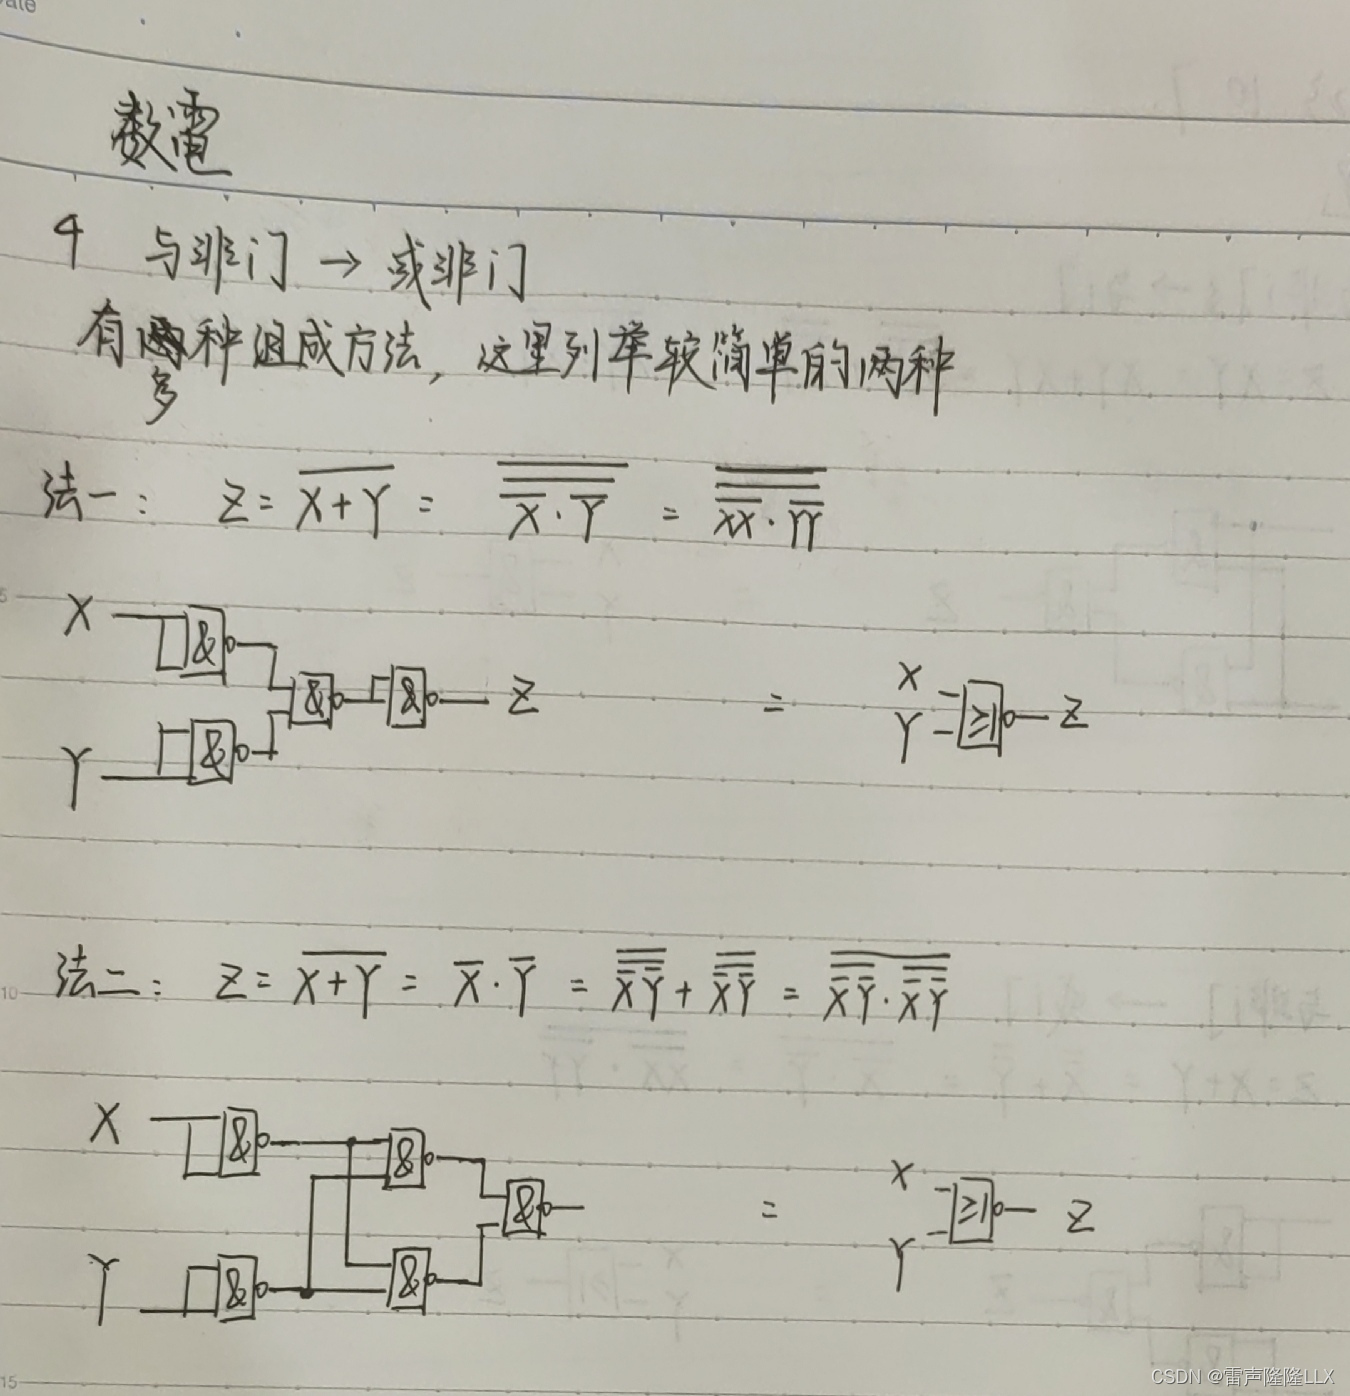 Date
数電
4 与非门 → 或非门
有多种组成方法，这里列举较简单的两种
法一： Z = \overline{X+Y} = \overline{\overline{\overline{X}·\overline{Y}}} = \overline{\overline{\overline{XX}·\overline{YY}}}
5
X & & & Z = X Y ≥1 Z
Y &
法二： Z = \overline{X+Y} = \overline{X}·\overline{Y} = \overline{\overline{\overline{X}\,\overline{Y}}} + \overline{\overline{\overline{X}\,\overline{Y}}} = \overline{\overline{\overline{X}\,\overline{Y}}·\overline{\overline{X}\,\overline{Y}}}
10
X & & & = X Y ≥1 Z
Y & &
15
CSDN @雷声隆隆LLX